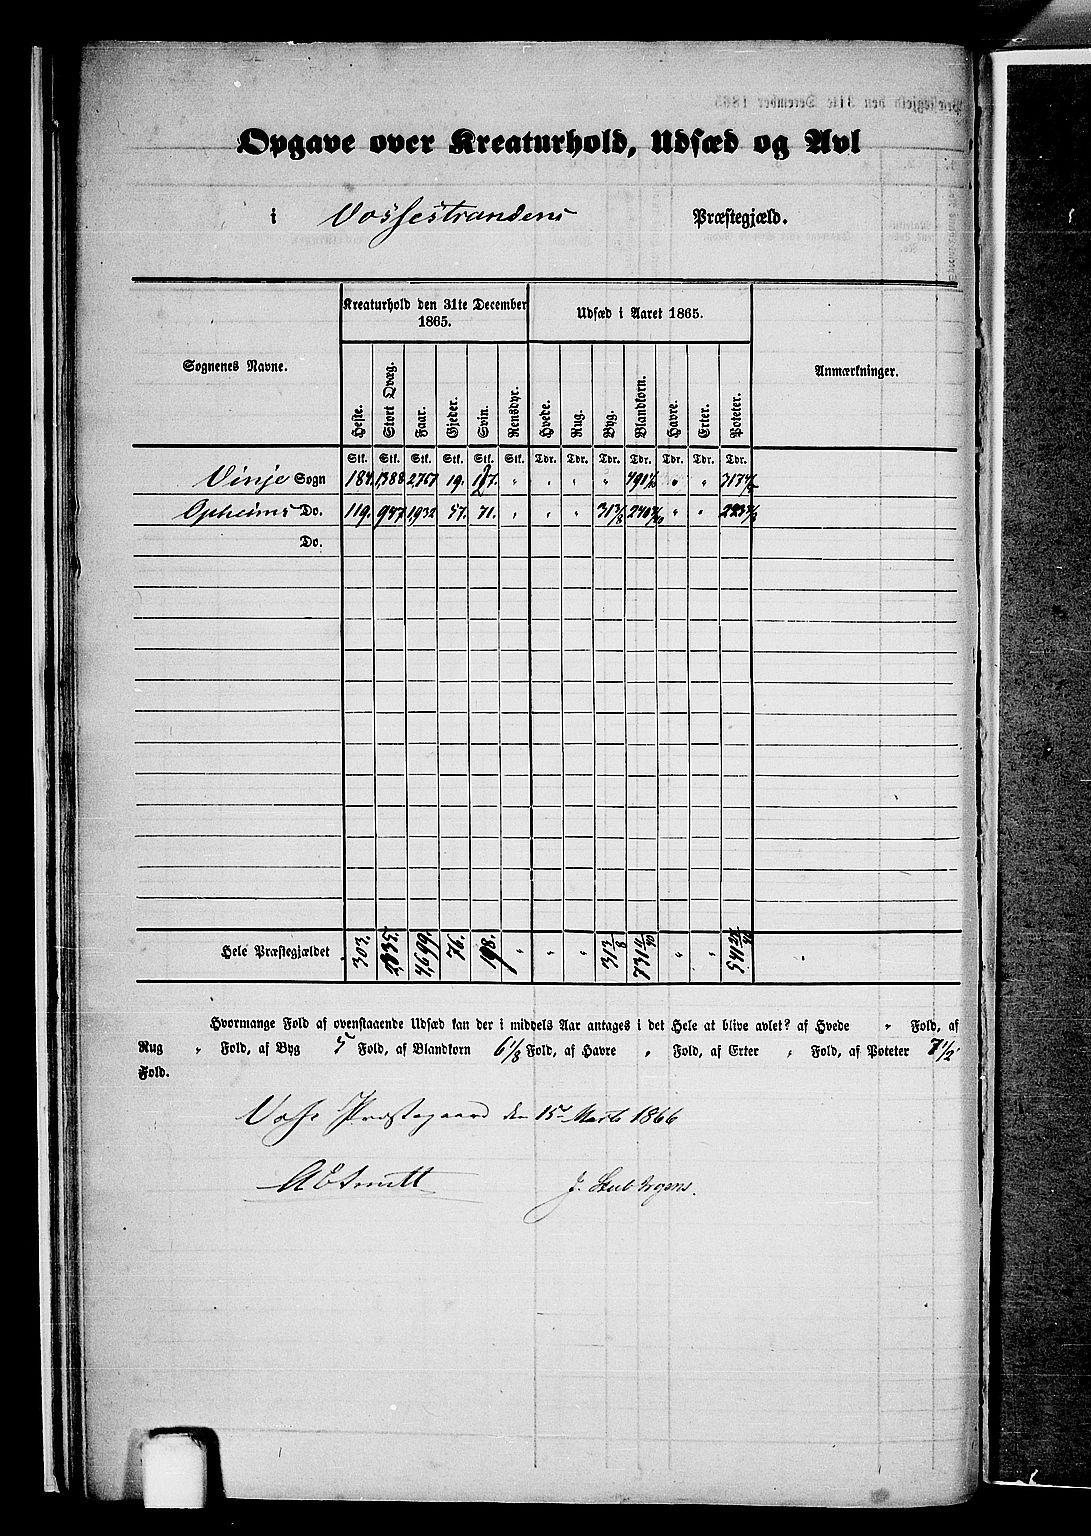 Opgave over Kreaturhold, Udsæd og Avl
i Vossestrandens Præstegjæld.
Sognenes Navne. Kreaturhold den 31te December 1865. Udsæd i Aaret 1865. Anmærkninger.
Heste. Stort Qvæg. Faar. Gjeder. Svin. Rensdyr. Hvede. Rug. Byg. Blandkorn. Havre. Erter. Poteter.
Stk. Stk. Stk. Stk. Stk. Stk. Tdr. Tdr. Tdr. Tdr. Tdr. Tdr. Tdr.
Vinje Sogn 184. 1388 2,767 19. 127. " " " " " "
Opheims Do. 119. 947 1932 57. 71. " " " 31 3/8 " "
Do.
Hele Præstegjældet 303. 2335. 4,699. 76. 198. " " " 31 3/8 " "
Hvormange Fold af ovenstaaende Udsæd kan der i middels Aar antages i det Hele at blive avlet? af Hvede " Fold, af
Rug " Fold, af Byg 5 Fold, af Blandkorn 6 1/8 Fold, af Havre " Fold, af Erter " Fold, af Poteter 7 1/2
Fold.
Voss Præstegaard den 15de Marts 1866